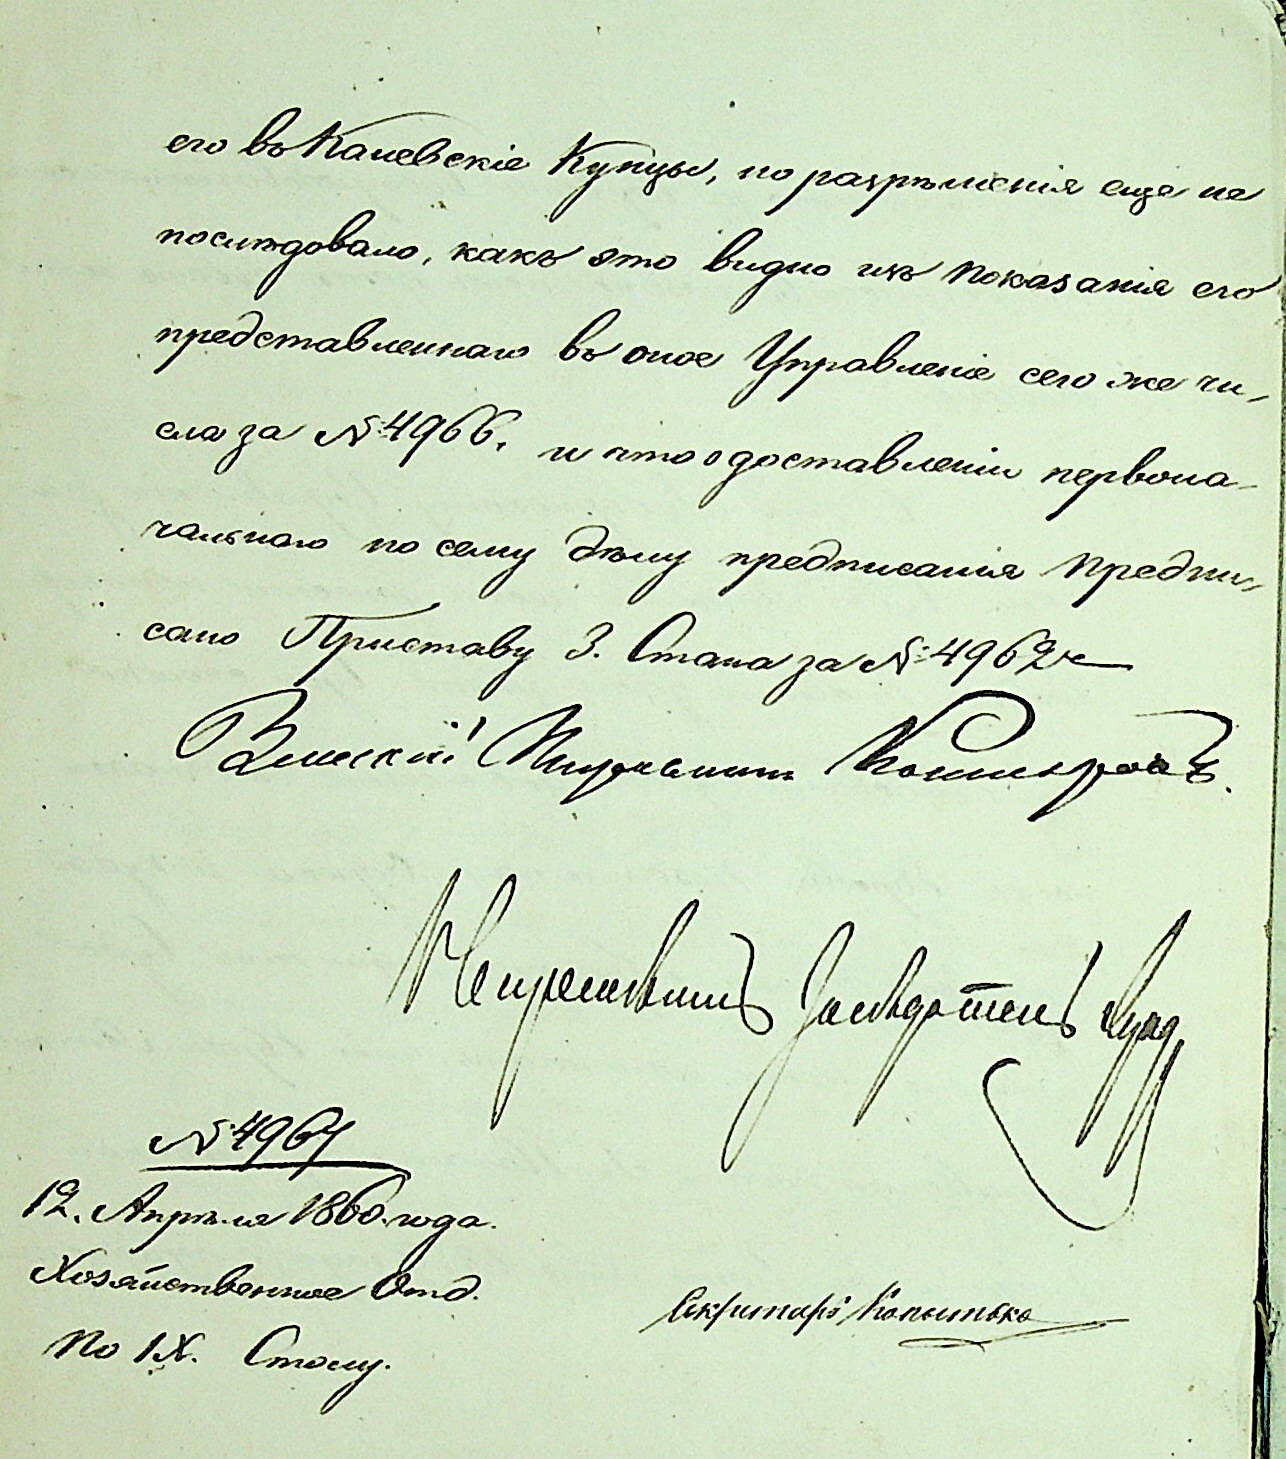 его въ Каневскіе Купцы, но разрѣшенія еще не
послѣдовало, какъ это видно изъ показанія его
представленнаго въ оное Управленіе сего же чи-
сла за № 4966. и что о доставленіи первона-
чальнаго по сему дѣлу предписанія предпи-
сано Приставу 3. Стана за № 4962
Земскій Исправникъ
Непремѣнный Засѣдатель
№ 4964
12. Апрѣля 1860. года.
Хозяйственное Отд.
По IX. Столу.
Секретарь